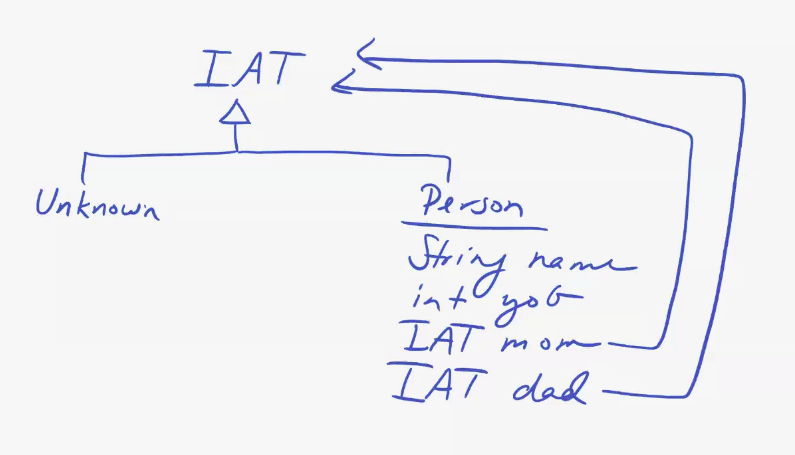 IAT
Unknown
Person
String name
int yob
IAT mom
IAT dad